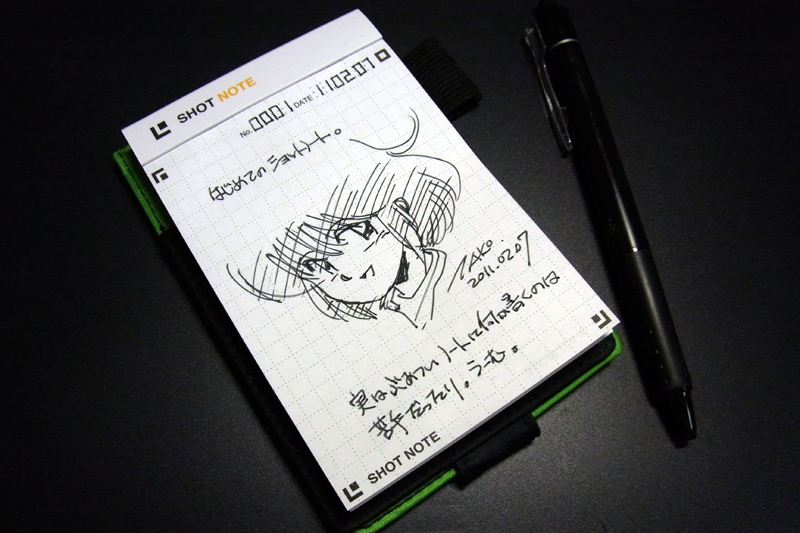 SHOT NOTE
No. 0001 DATE 11.02.07
はじめての ショットノート。
TAKO
2011.02.07
実はぶあつい ノートに何か書くのは
苦手だったり。うーむ。
SHOT NOTE